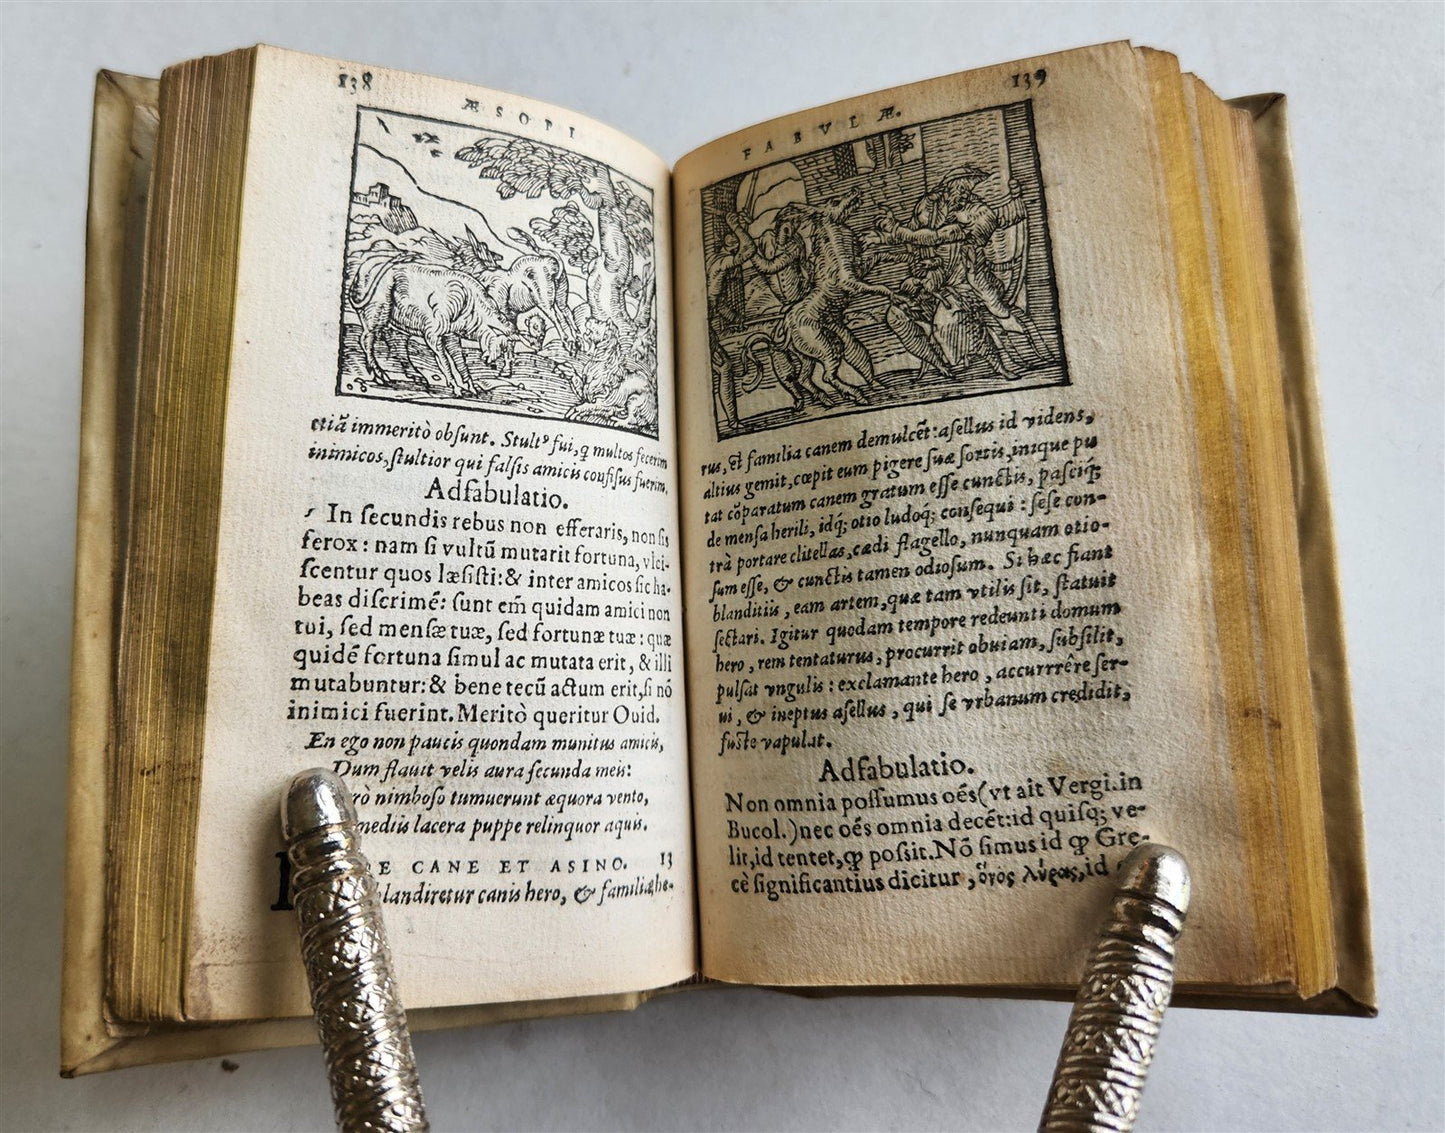 138
ÆSOPI
etiã immeritò obſunt. Stultꝰ fui, ꝙ multos fecerim
inimicos, ſtultior qui falſis amicis confiſus fuerim.
Adfabulatio.
In ſecundis rebus non efferaris, non ſis
ferox: nam ſi vultũ mutarit fortuna, vlci-
ſcentur quos læſiſti: & inter amicos ſic ha-
beas diſcrimẽ: ſunt em̃ quidam amici non
tui, ſed menſæ tuæ, ſed fortunæ tuæ: quæ
quidẽ fortuna ſimul ac mutata erit, & illi
mutabuntur: & bene tecũ actum erit, ſi nõ
inimici fuerint. Meritò queritur Ouid.
En ego non paucis quondam munitus amicis,
Dum flauit velis aura ſecunda meis:
rò nimboſo tumuerunt æquora vento,
mediis lacera puppe relinquor aquis.
E CANE ET ASINO. 13
blandiretur canis hero, & familiæ, he-
FABVLÆ.
139
rus, & familia canem demulcẽt: aſellus id videns,
altius gemit, cœpit eum pigere ſuæ ſortis, inique pu
tat cõparatum canem gratum eſſe cunctis, paſciq́;
de menſa herili, idq́; otio ludoq́; conſequi: ſeſe con-
trà portare clitellas, cædi flagello, nunquam otio-
ſum eſſe, & cunctis tamen odioſum. Si hæc fiant
blanditiis, eam artem, quæ tam vtilis ſit, ſtatuit
ſectari. Igitur quodam tempore redeunti domum
hero, rem tentaturus, procurrit obuiam, ſubſilit,
pulſat vngulis: exclamante hero, accurrrêre ſer-
ui, & ineptus aſellus, qui ſe vrbanum credidit,
fuſte vapulat.
Adfabulatio.
Non omnia poſſumus oẽs (vt ait Vergi. in
Bucol.) nec oẽs omnia decẽt: id quiſq; ve-
lit, id tentet, ꝙ poſſit. Nõ ſimus id ꝙ Græ-
cè ſignificantius dicitur, ὄνος λύρας, id